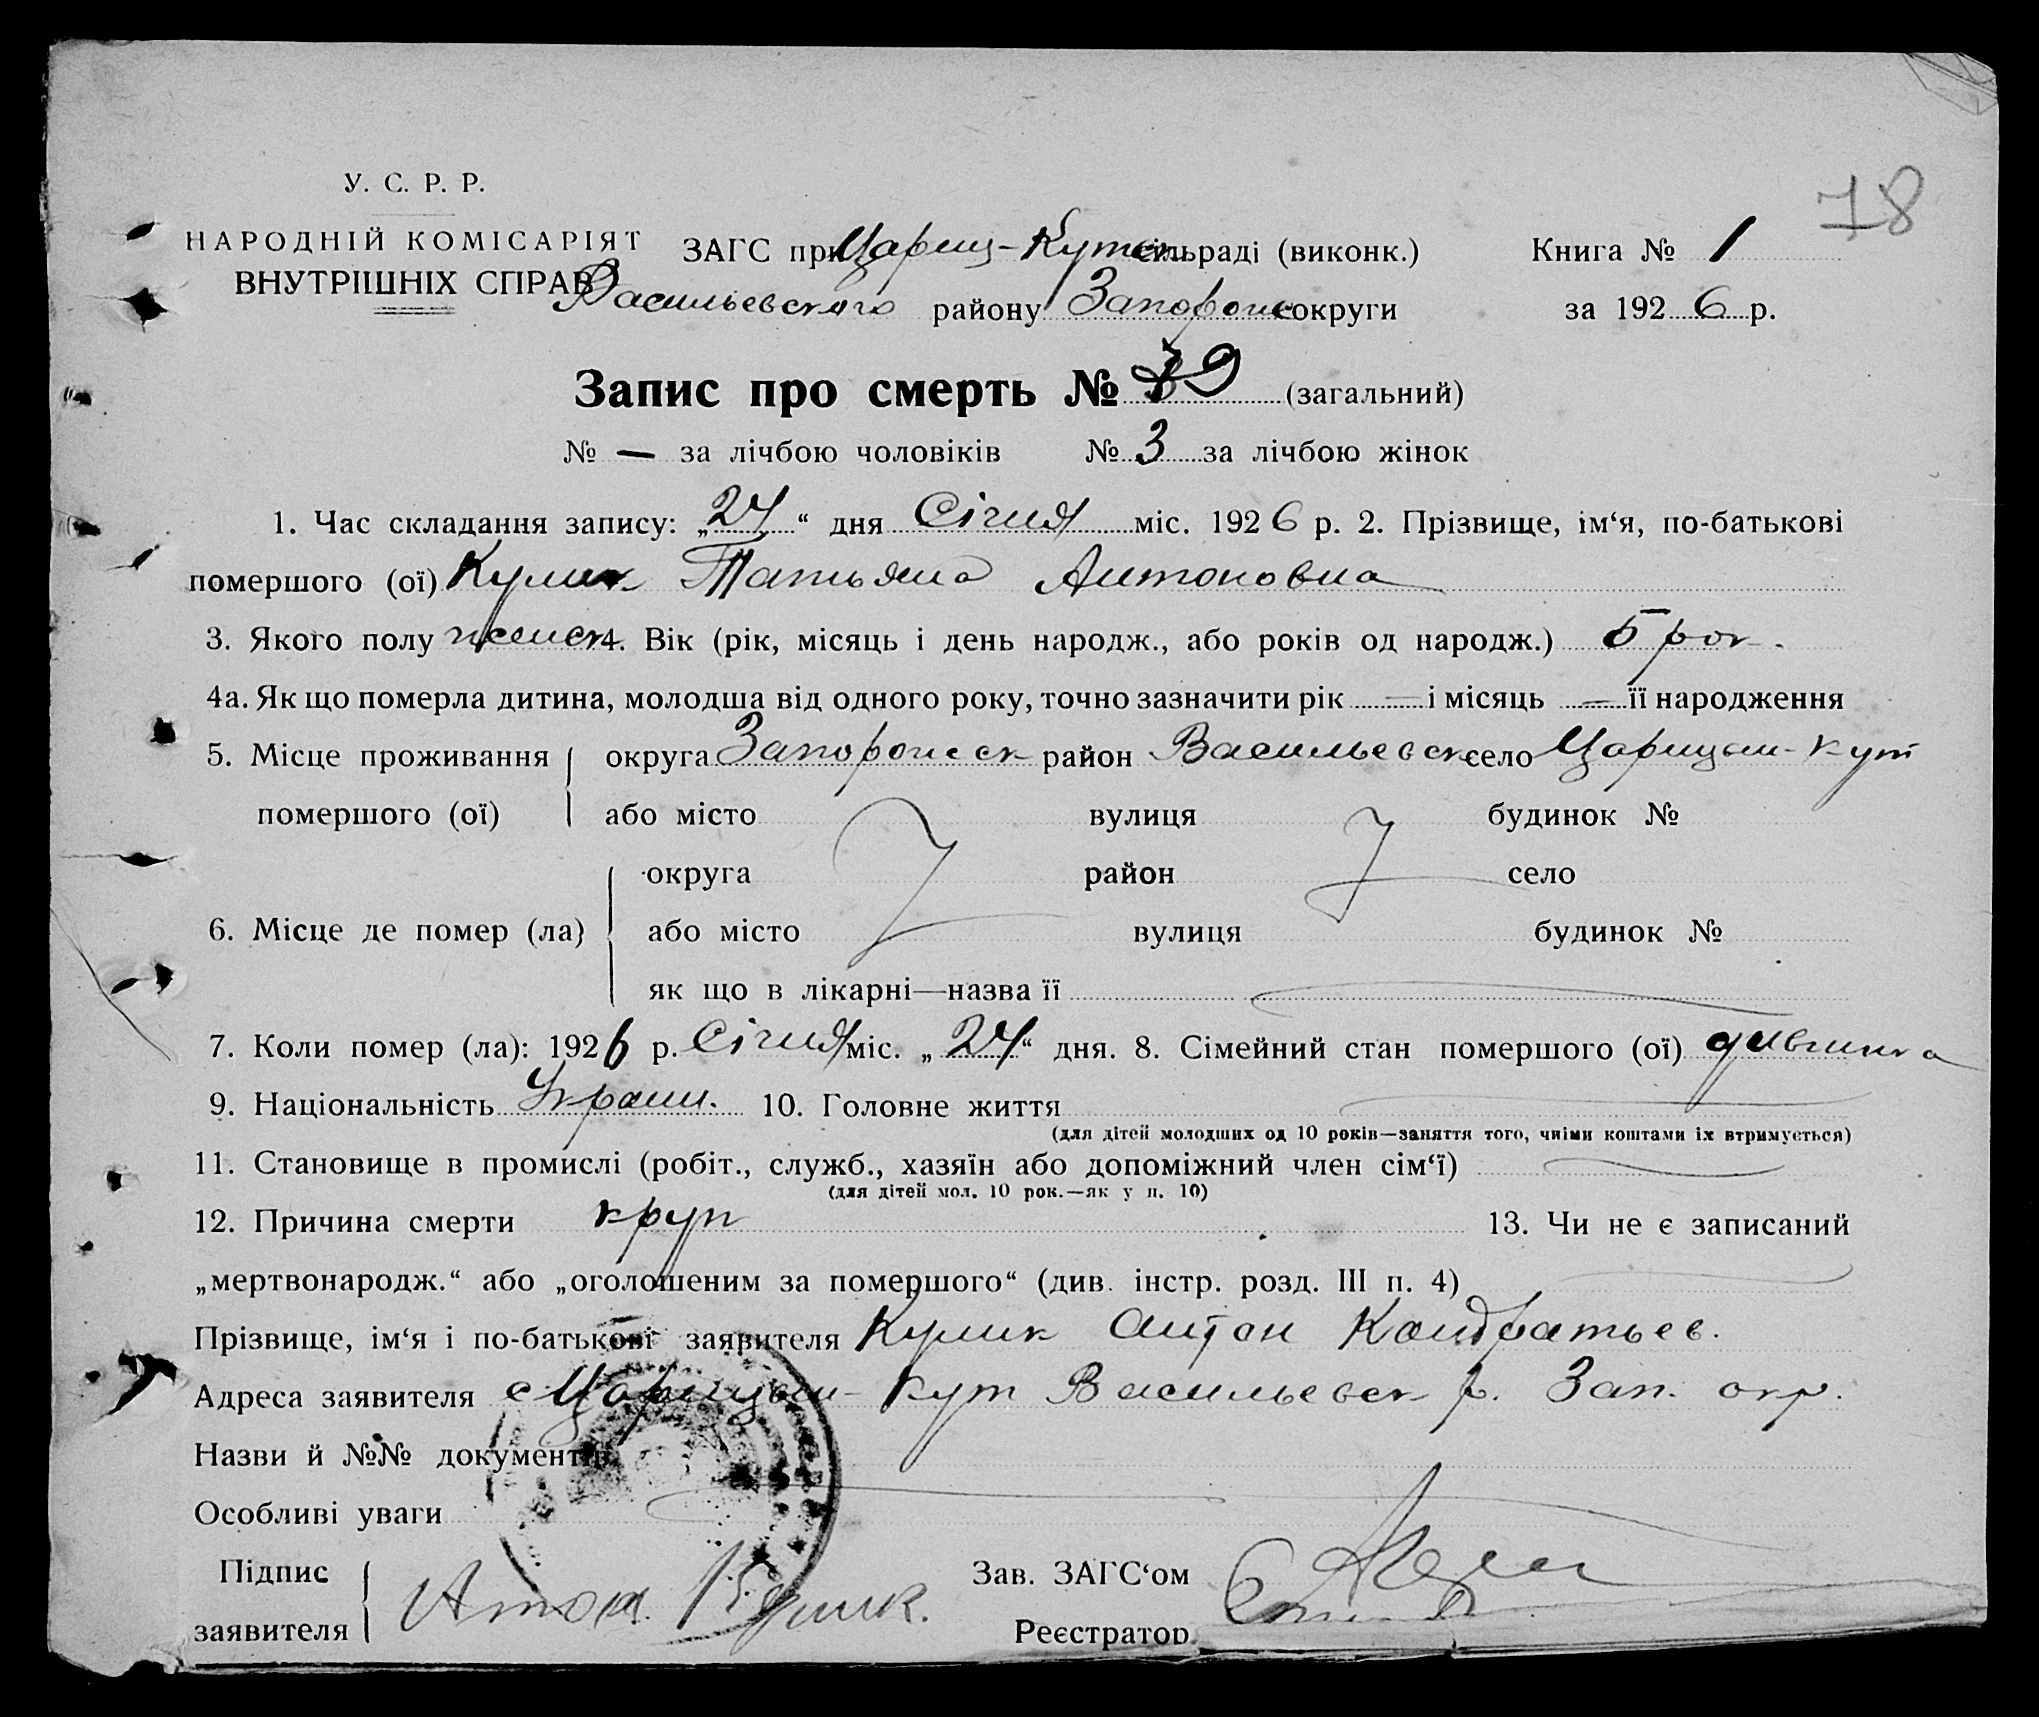 78
У. С. Р. Р.
НАРОДНІЙ КОМІСАРІЯТ
ВНУТРІШНІХ СПРАВ
ЗАГС при Цариц-Кутск сільраді (виконк.) Книга № 1
Васильевского району Запорож округи за 1926 р.
Запис про смерть № 9 (загальний)
№ — за лічбою чоловіків № 3 за лічбою жінок
1. Час складання запису: „24“ дня Січня міс. 1926 р. 2. Прізвище, ім‘я, по-батькові
помершого (ої) Кулик Татьяна Антоновна
3. Якого полу женск 4. Вік (рік, місяць і день народж., або років од народж.) 5 рок.
4а. Як що померла дитина, молодша від одного року, точно зазначити рік — і місяць — її народження
5. Місце проживання округа Запорожск район Васильевск село Царицын-кут
помершого (ої) або місто вулиця будинок №
округа район село
6. Місце де помер (ла) або місто вулиця будинок №
як що в лікарні—назва її
7. Коли помер (ла): 1926 р. Січня міс. „24“ дня. 8. Сімейний стан помершого (ої) дивчинка
9. Національність Украин. 10. Головне життя
(для дітей молодших од 10 років—заняття того, чиїми коштами їх втримується)
11. Становище в промислі (робіт., служб., хазяїн або допоміжний член сім‘ї)
(для дітей мол. 10 рок.—як у п. 10)
12. Причина смерти круп 13. Чи не є записаний
„мертвонародж.“ або „оголошеним за помершого“ (див. інстр. розд. III п. 4)
Прізвище, ім‘я і по-батькові заявителя Кулик Антон Кондратьев.
Адреса заявителя с Царицын-Кут Васильевск р. Зап. окр.
Назви й №№ документів
Особливі уваги
Підпис Зав. ЗАГС‘ом
заявителя Антон Кулик. Реєстратор